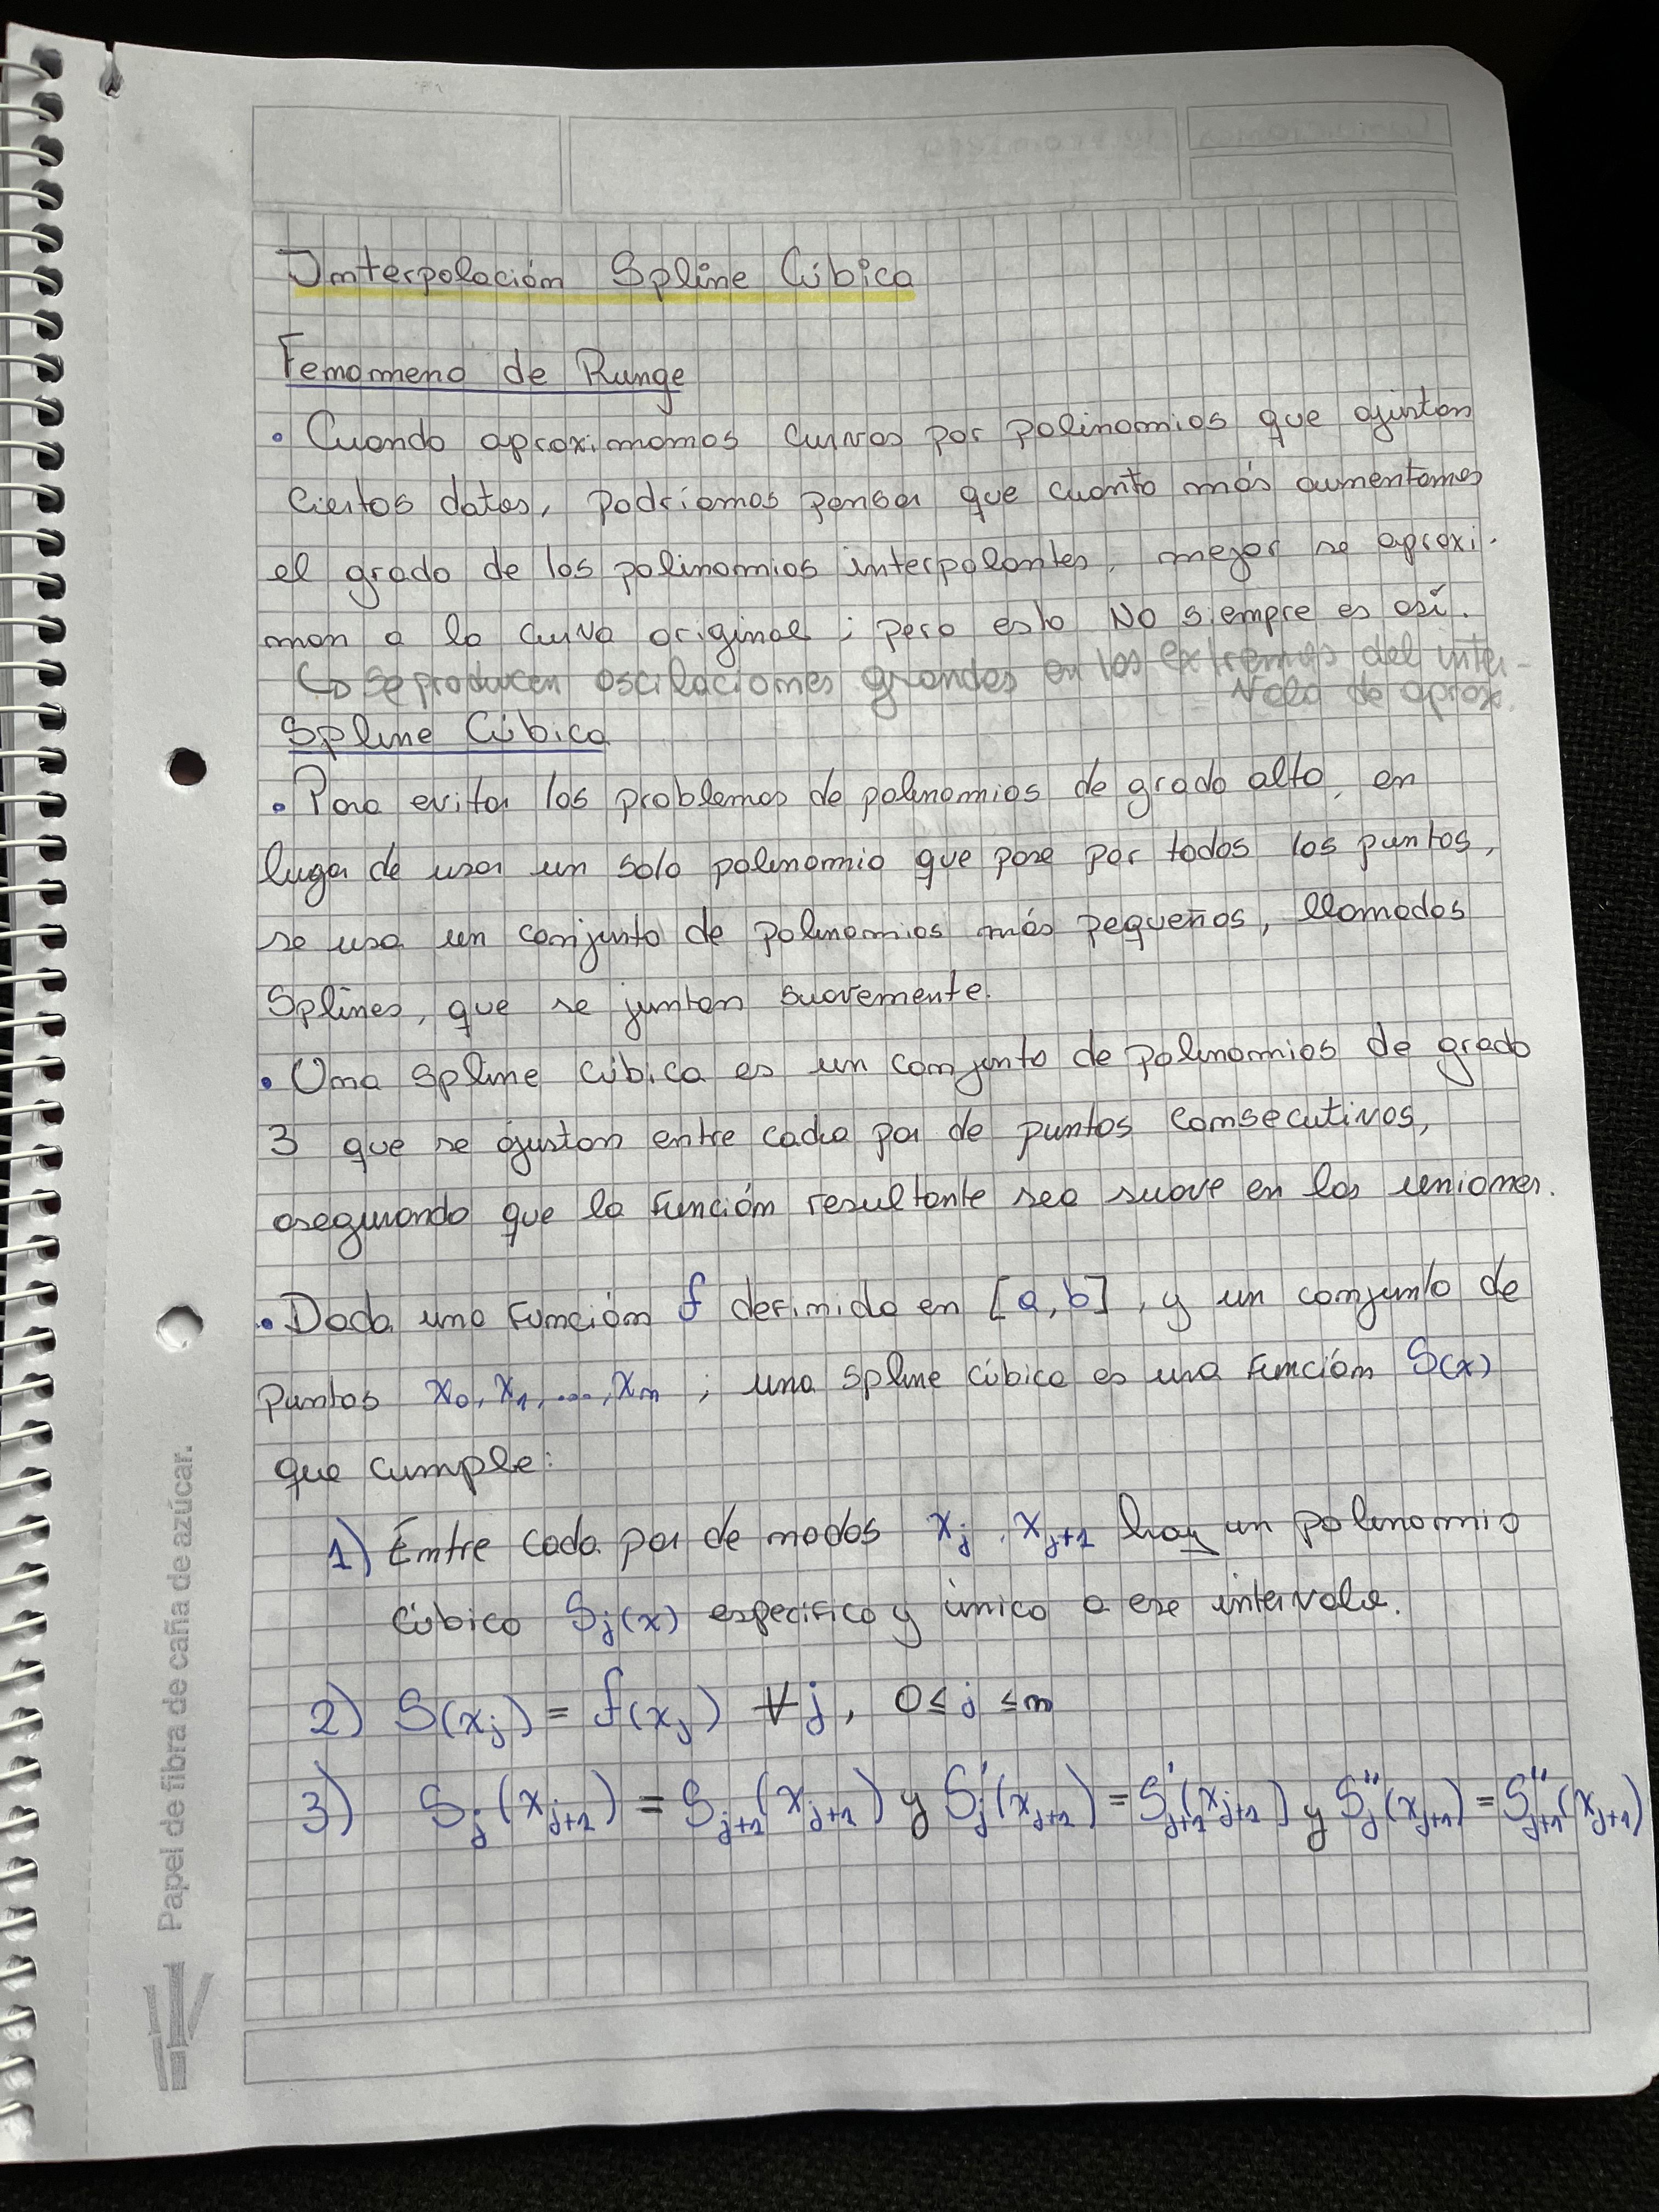 Interpolación Spline Cúbica
Fenomeno de Runge
• Cuando aproximamos curvas por polinomios que ajustan
ciertos datos, podríamos pensar que cuanto más aumentamos
el grado de los polinomios interpolantes, mejor se aproxi-
man a la curva original; pero esto NO siempre es así.
↳ Se producen oscilaciones grandes en los extremos del inter-
valo de aprox.
Spline Cúbica
• Para evitar los problemas de polinomios de grado alto, en
lugar de usar un solo polinomio que pase por todos los puntos,
se usa un conjunto de polinomios más pequeños, llamados
Splines, que se juntan suavemente.
• Una spline cúbica es un conjunto de polinomios de grado
3 que se ajustan entre cada par de puntos consecutivos,
asegurando que la función resultante sea suave en las uniones.
• Dada una función f definida en [a, b], y un conjunto de
puntos x₀, x₁, ..., xₙ ; una spline cúbica es una función S(x)
que cumple:
1) Entre cada par de nodos xⱼ, xⱼ₊₁ hay un polinomio
cúbico Sⱼ(x) especifico y único a ese intervalo.
2) S(xⱼ) = f(xⱼ) ∀j, 0 ≤ j ≤ n
3) Sⱼ(xⱼ₊₁) = Sⱼ₊₁(xⱼ₊₁) y S'ⱼ(xⱼ₊₁) = S'ⱼ₊₁(xⱼ₊₁) y S''ⱼ(xⱼ₊₁) = S''ⱼ₊₁(xⱼ₊₁)
Papel de fibra de caña de azúcar.